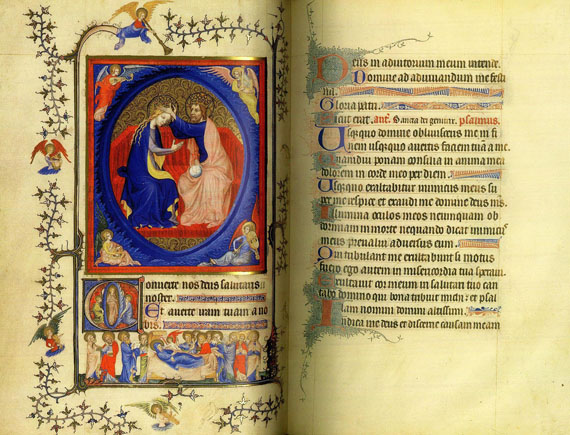 Converte nos deus salutaris
noster.
Et averte iram tuam a no
bis.
Deus in adiutorium meum intende.
Domine ad adiuvandum me festi
na.
Gloria patri.
Sicut erat. ant. Sancta dei genitrix. psalmus.
Usquequo domine oblivisceris me in fi
nem usquequo avertis faciem tuam a me
Quamdiu ponam consilia in anima mea
dolorem in corde meo per diem.
Usquequo exaltabitur inimicus meus su
per me respice et exaudi me domine deus meus
Illumina oculos meos ne unquam ob
dormiam in morte nequando dicat inimicus
meus prevalui adversus eum.
Qui tribulant me exultabunt si motus
fuero ego autem in misericordia tua speravi.
Exultavit cor meum in salutari tuo can
tabo domino qui bona tribuit michi et psal
lam nomini domini altissimi.
Iudica me deus et discerne causam meam